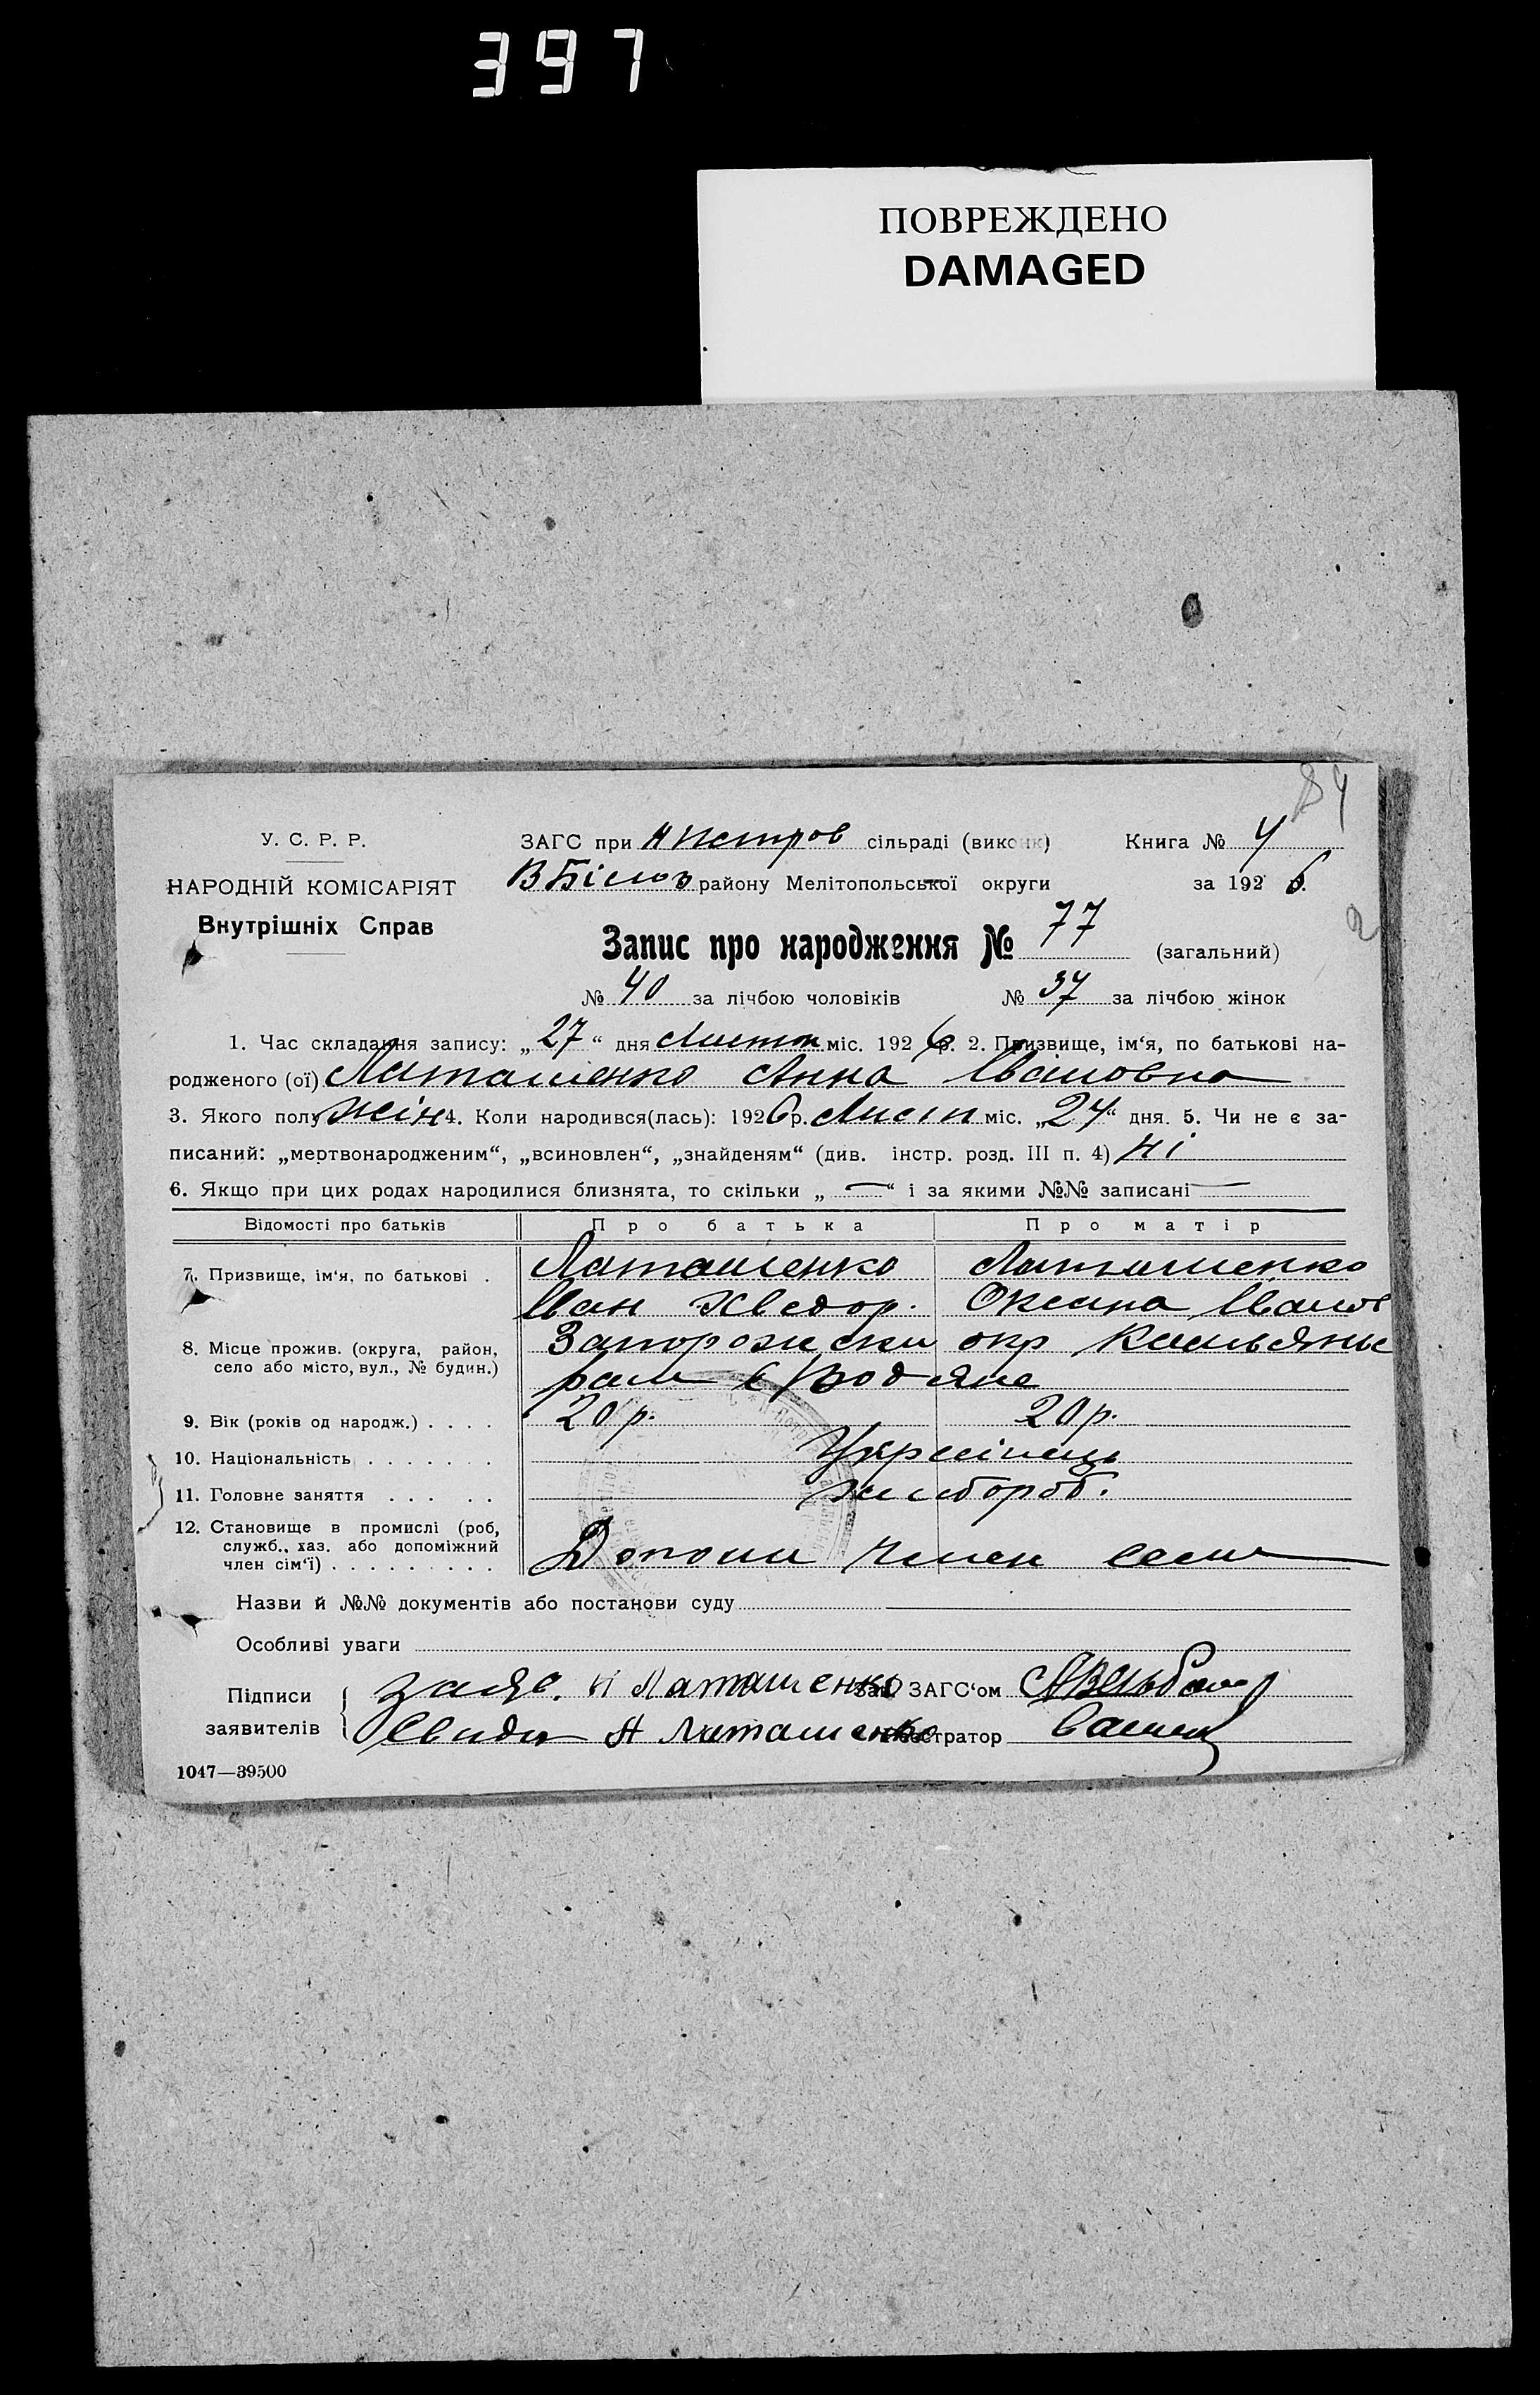 397
ПОВРЕЖДЕНО
DAMAGED
84
У. С. Р. Р.
НАРОДНІЙ КОМІСАРІЯТ
Внутрішніх Справ
ЗАГС при Н Петров сільраді (виконк) Книга № 4
В Білоз району Мелітопольської округи за 1926 р.
2
Запис про народження № 77 (загальний)
№ 40 за лічбою чоловіків № 37 за лічбою жінок
1. Час складання запису: „27“ дня Листоп міс. 1926 р. 2. Призвище, ім‘я, по батькові на-
родженого (ої) Латашенко Анна Івановна
3. Якого полу жін 4. Коли народився(лась): 1926 р. Лист міс. „24“ дня. 5. Чи не є за-
писаний: „мертвонародженим“, „всиновлен“, „знайденям“ (див. інстр. розд. III п. 4) ні
6. Якщо при цих родах народилися близнята, то скільки „—“ і за якими №№ записані —
Відомості про батьків Про батька Про матір
7. Призвище, ім‘я, по батькові . Латашенко Латашенко
Іван Хведор. Оксана Іванов
8. Місце прожив. (округа, район,
село або місто, вул., № будин.)
Запорожски окр
рай с Водяне
9. Вік (років од народж.) . . . . 20 р. 20 р.
10. Національність . . . . . . . Українець
11. Головне заняття . . . . . хлибороб.
12. Становище в промислі (роб,
служб., хаз. або допоміжний
член сім‘ї) . . . . . . . . .
Допом член семи
Назви й №№ документів або постанови суду
Особливі уваги
Підписи
заявителів
Заяв. И Латашенко Зав. ЗАГС‘ом
Свидк А Латашенко Реєстратор
1047—39500